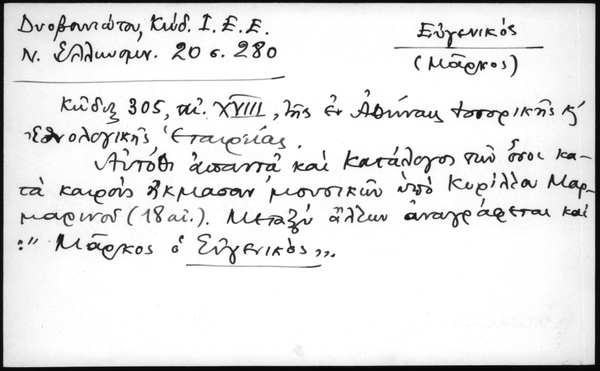 Δυοβουνιώτου, Κώδ. Ι. Ε. Ε.
Ν. Ελληνομν. 20 σ. 280
Εὐγενικός
(Μᾶρκος)
Κῶδιξ 305, αἰ. XVIII, τῆς ἐν Ἀθήναις Ἱστορικῆς κ'
Ἐθνολογικῆς Ἑταιρείας.
Αὐτόθι ἀπαντᾶ καὶ Κατάλογος τῶν ὅσοι κα-
τὰ καιροὺς ἤκμασαν μουσικῶν ὑπὸ Κυρίλλου Μαρ-
μαρινοῦ (18 αἰ.). Μεταξὺ ἄλλων ἀναγράφεται καὶ
:" Μᾶρκος ὁ Εὐγενικὸς„.